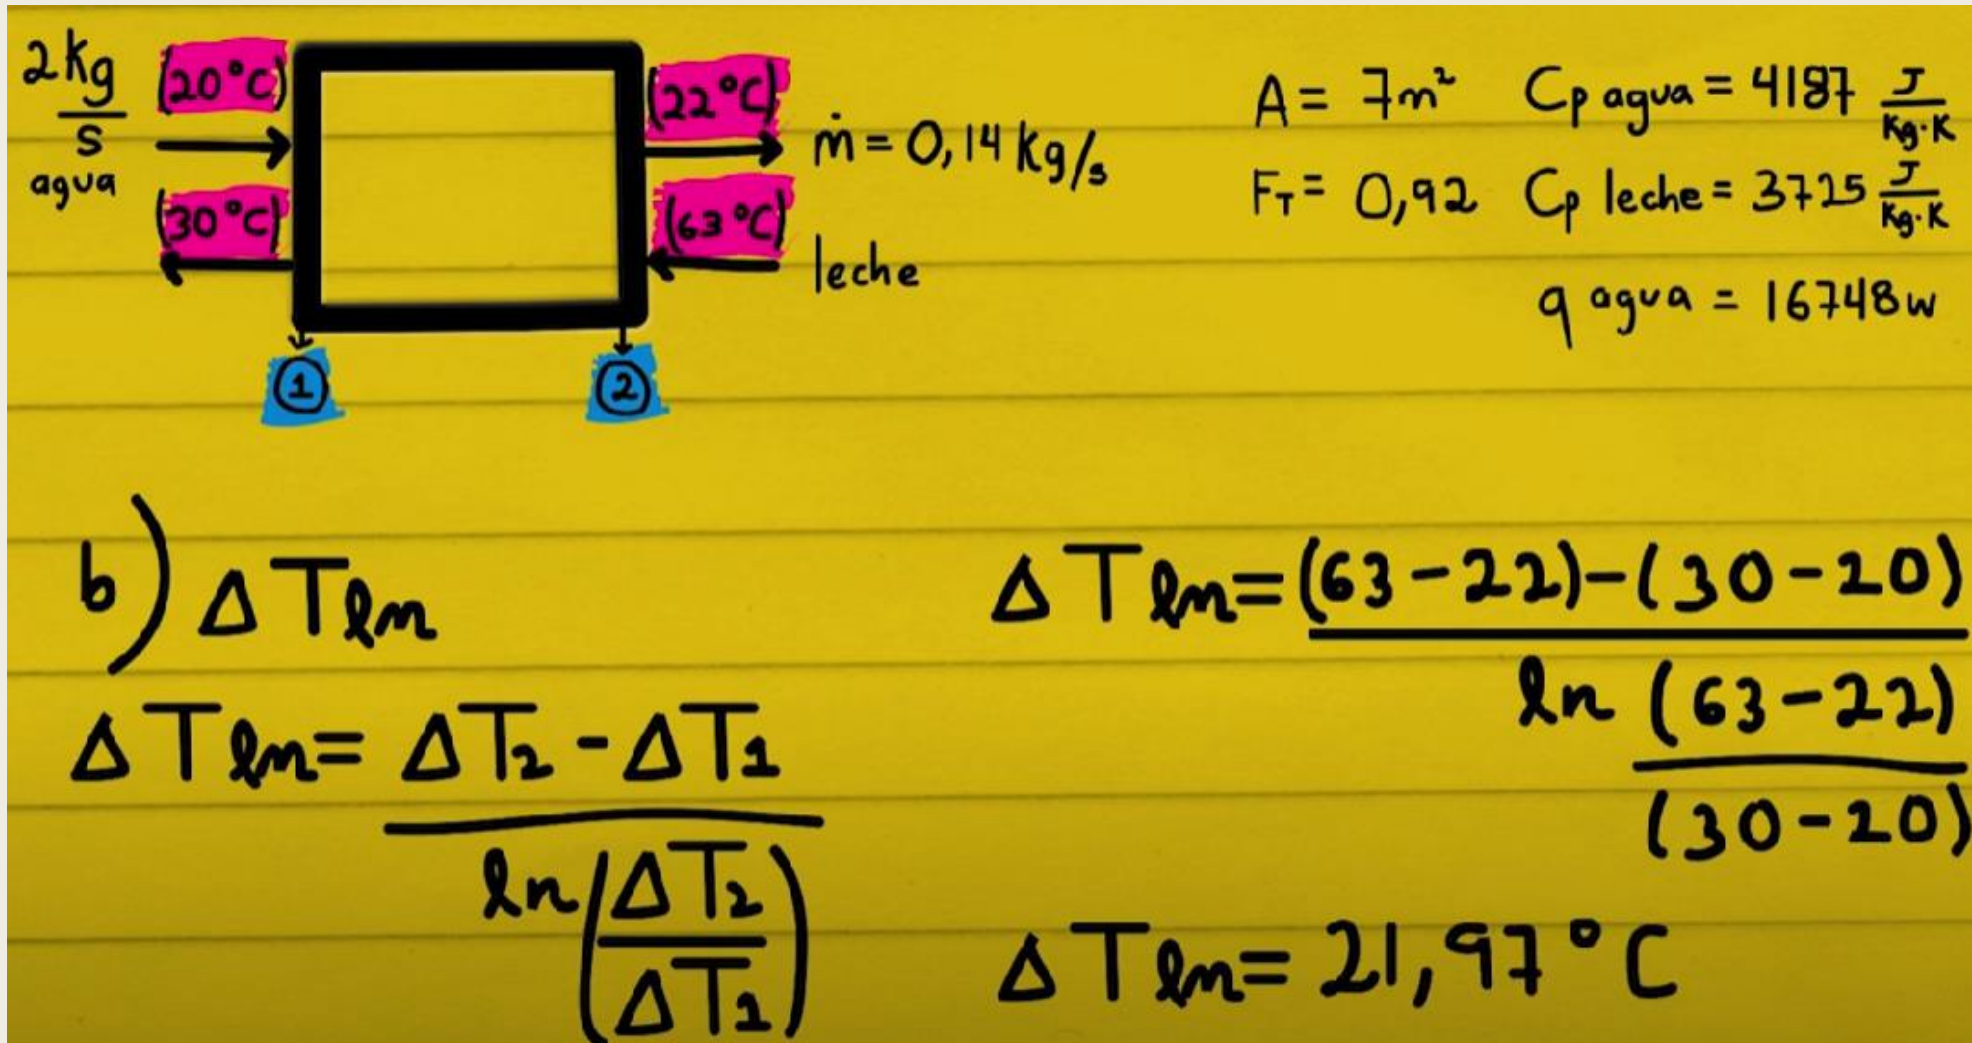 2kg/s (20°C) (22°C) ṁ = 0,14 kg/s
agua (30°C) (63°C) leche
① ②
A = 7m² Cp agua = 4187 J/Kg·K
F_T = 0,92 Cp leche = 3725 J/Kg·K
q agua = 16748w
b) ΔTln
ΔTln = (ΔT2 - ΔT1) / ln(ΔT2/ΔT1)
ΔTln = (63-22)-(30-20) / ln (63-22)/(30-20)
ΔTln = 21,97°C